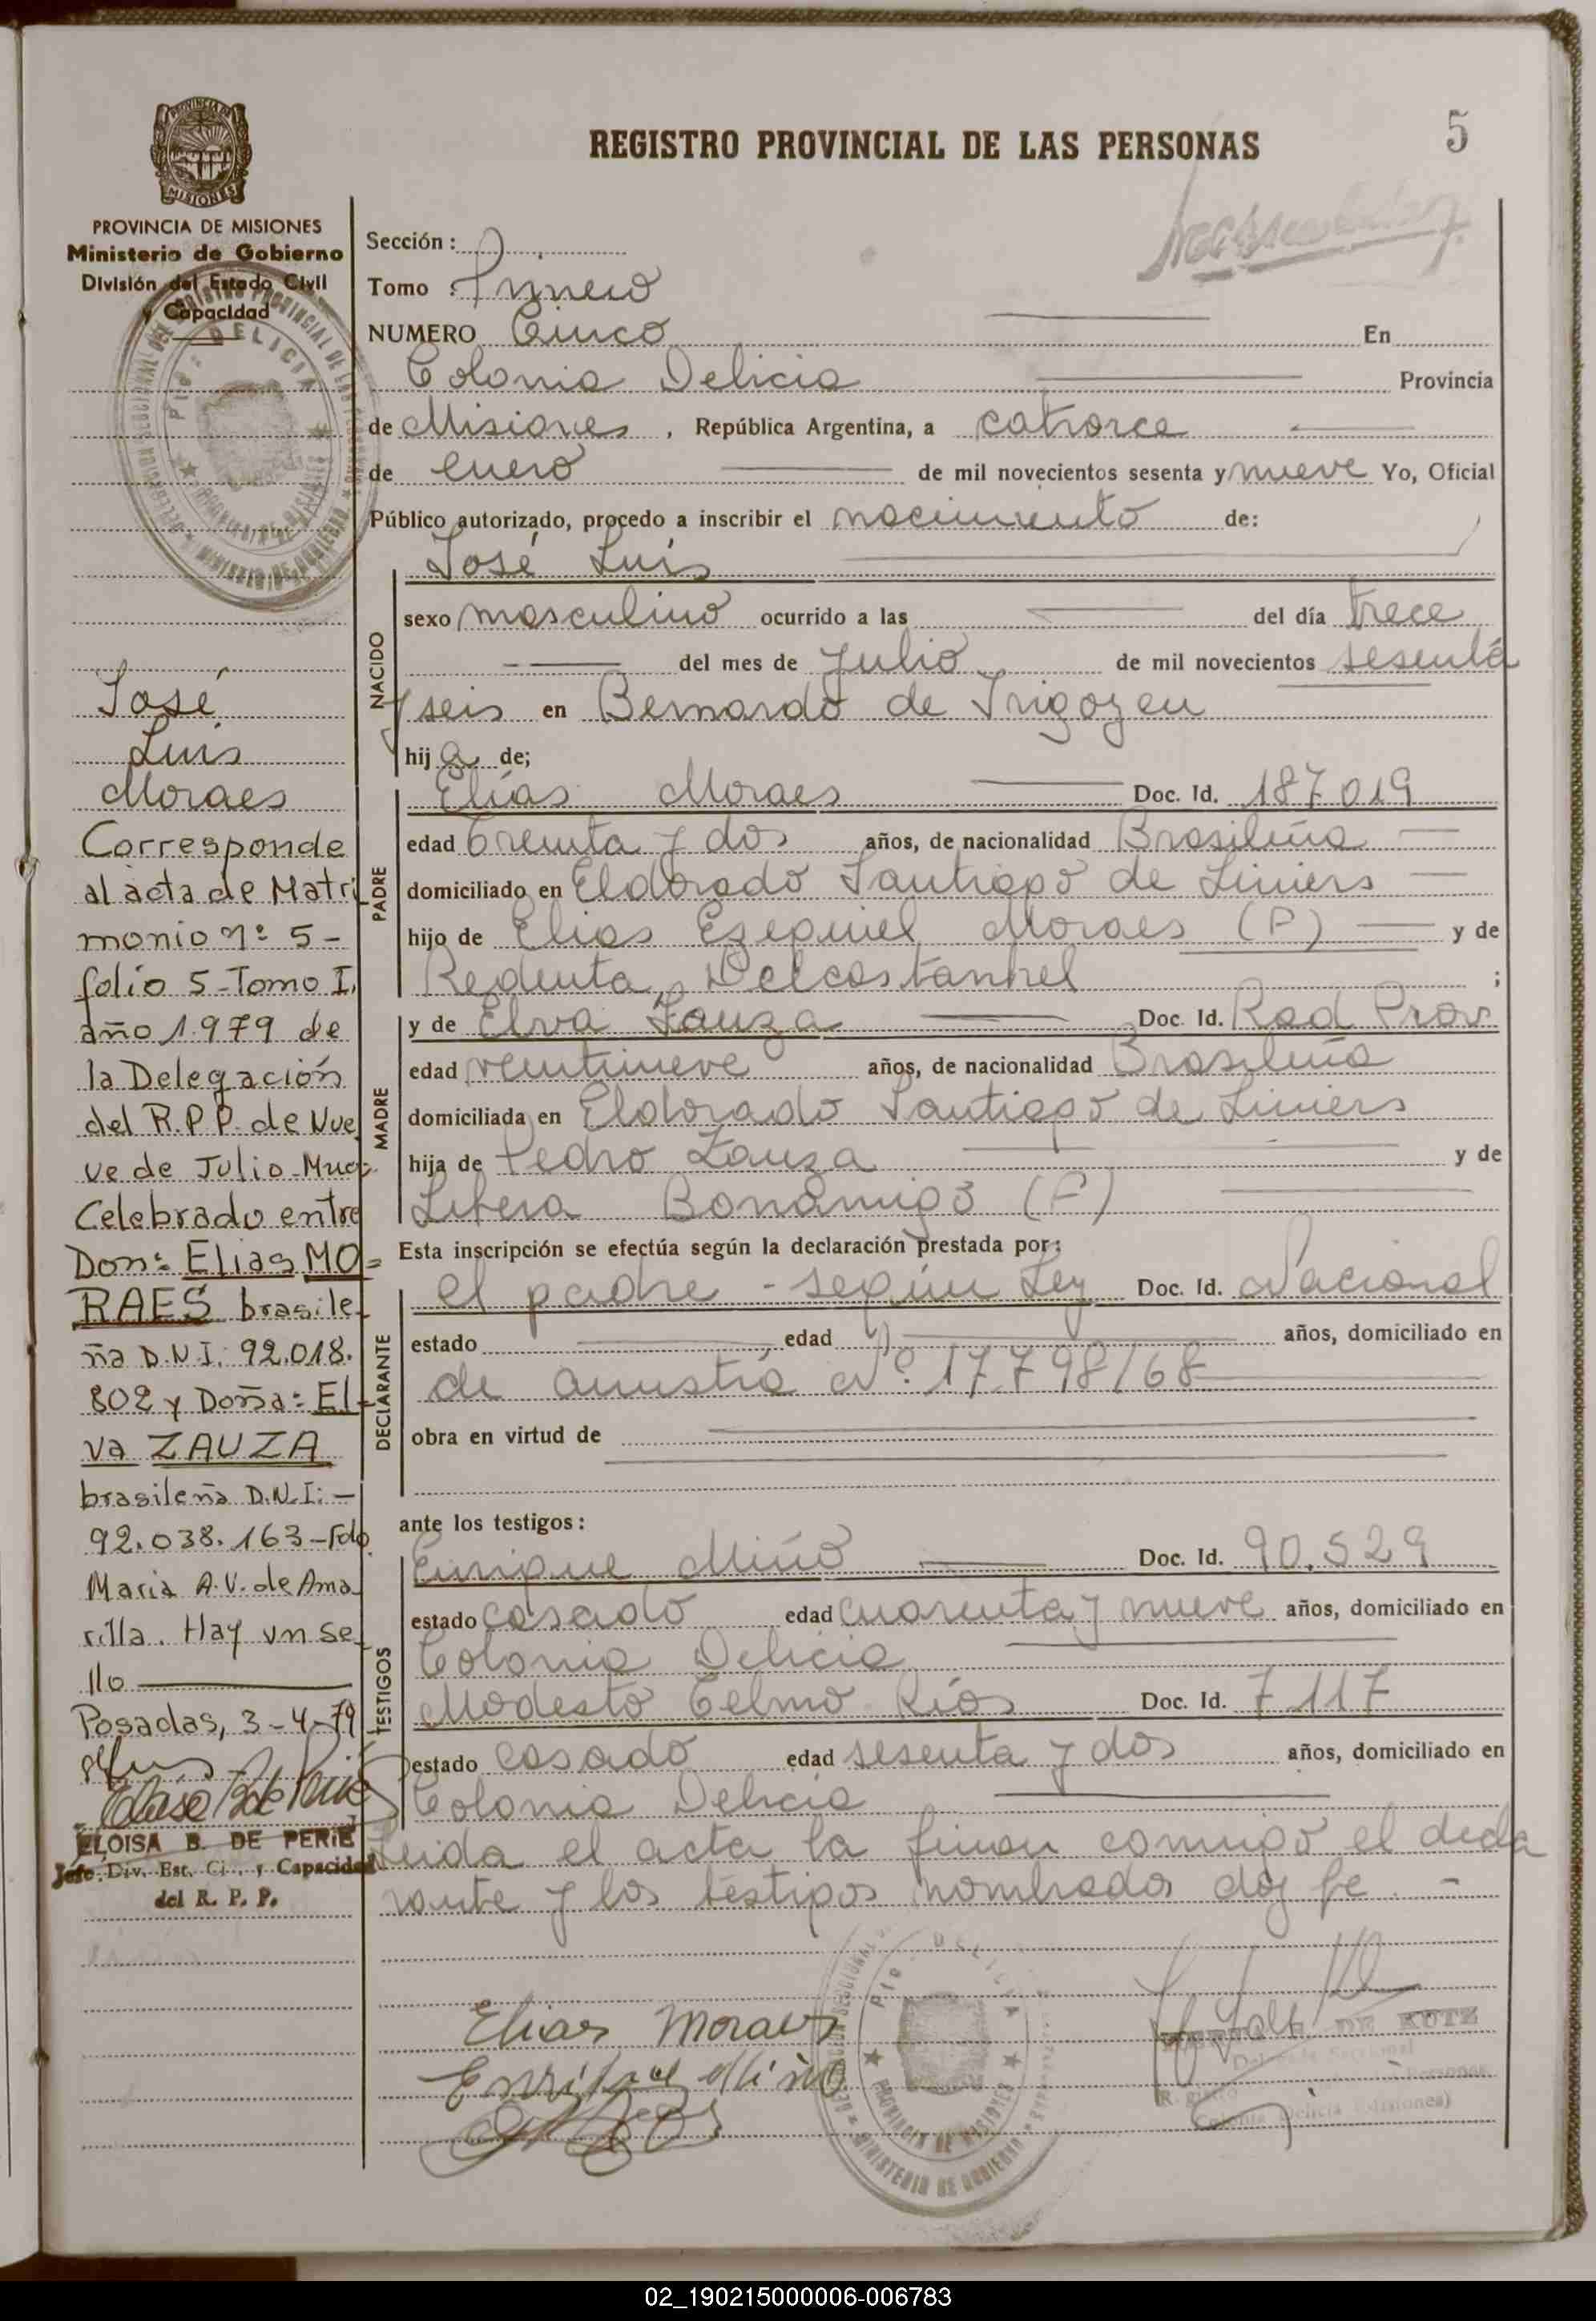 REGISTRO PROVINCIAL DE LAS PERSONAS
5
PROVINCIA DE MISIONES
Ministerio de Gobierno
División del Estado Civil
y Capacidad
José
Luis
Moraes
Corresponde
al acta de Matri
monio nº 5-
folio 5-Tomo I,
año 1.979 de
la Delegación
del R.P.P. de Nue
ve de Julio-Mnes
Celebrado entre
Don: Elias MO=
RAES brasile-
ña D.N.I: 92.018.
802 y Doña: El-
va ZAUZA
brasileña D.N.I:-
92.038.163-Fdo
Maria A.V. de Ama
rilla. Hay un se
llo
Posadas, 3-4-79
ELOISA B. DE PERIE
Jefe Div. Est. Ci. y Capacidad
del R. P. P.
Sección:
Tomo : Primero
NUMERO Cinco En
Colonia Delicia Provincia
de Misiones, República Argentina, a catorce
de enero de mil novecientos sesenta y nueve Yo, Oficial
Público autorizado, procedo a inscribir el nacimiento de:
José Luis
NACIDO
sexo masculino ocurrido a las del día trece
del mes de Julio de mil novecientos sesenta
y seis en Bernardo de Irigoyen
hij o de;
PADRE
Elías Moraes Doc. Id. 187019
edad treinta y dos años, de nacionalidad Brasileña
domiciliado en Eldorado Santiago de Liniers
hijo de Elias Ezequiel Moraes (F) y de
Redenta Delcostanhel ;
MADRE
y de Elva Zauza Doc. Id. Rad Prov.
edad veintinueve años, de nacionalidad Brasileña
domiciliada en Eldorado Santiago de Liniers
hija de Pedro Zauza y de
Libera Bonamigo (F)
Esta inscripción se efectúa según la declaración prestada por:
DECLARANTE
el padre - según Ley Doc. Id. Nacional
estado edad años, domiciliado en
de amnistía Nº 17.798/68
obra en virtud de
ante los testigos:
TESTIGOS
Enrique Miño Doc. Id. 90.529
estado casado edad cuarenta y nueve años, domiciliado en
Colonia Delicia
Modesto Telmo Ríos Doc. Id. 7.117
estado casado edad sesenta y dos años, domiciliado en
Colonia Delicia
Leida el acta la firman conmigo el decla
rante y los testigos nombrados doy fe. -
Elias Moraes
Enrique Miño
DE KUTZ
Colonia Delicia (Misiones)
02_190215000006-006783